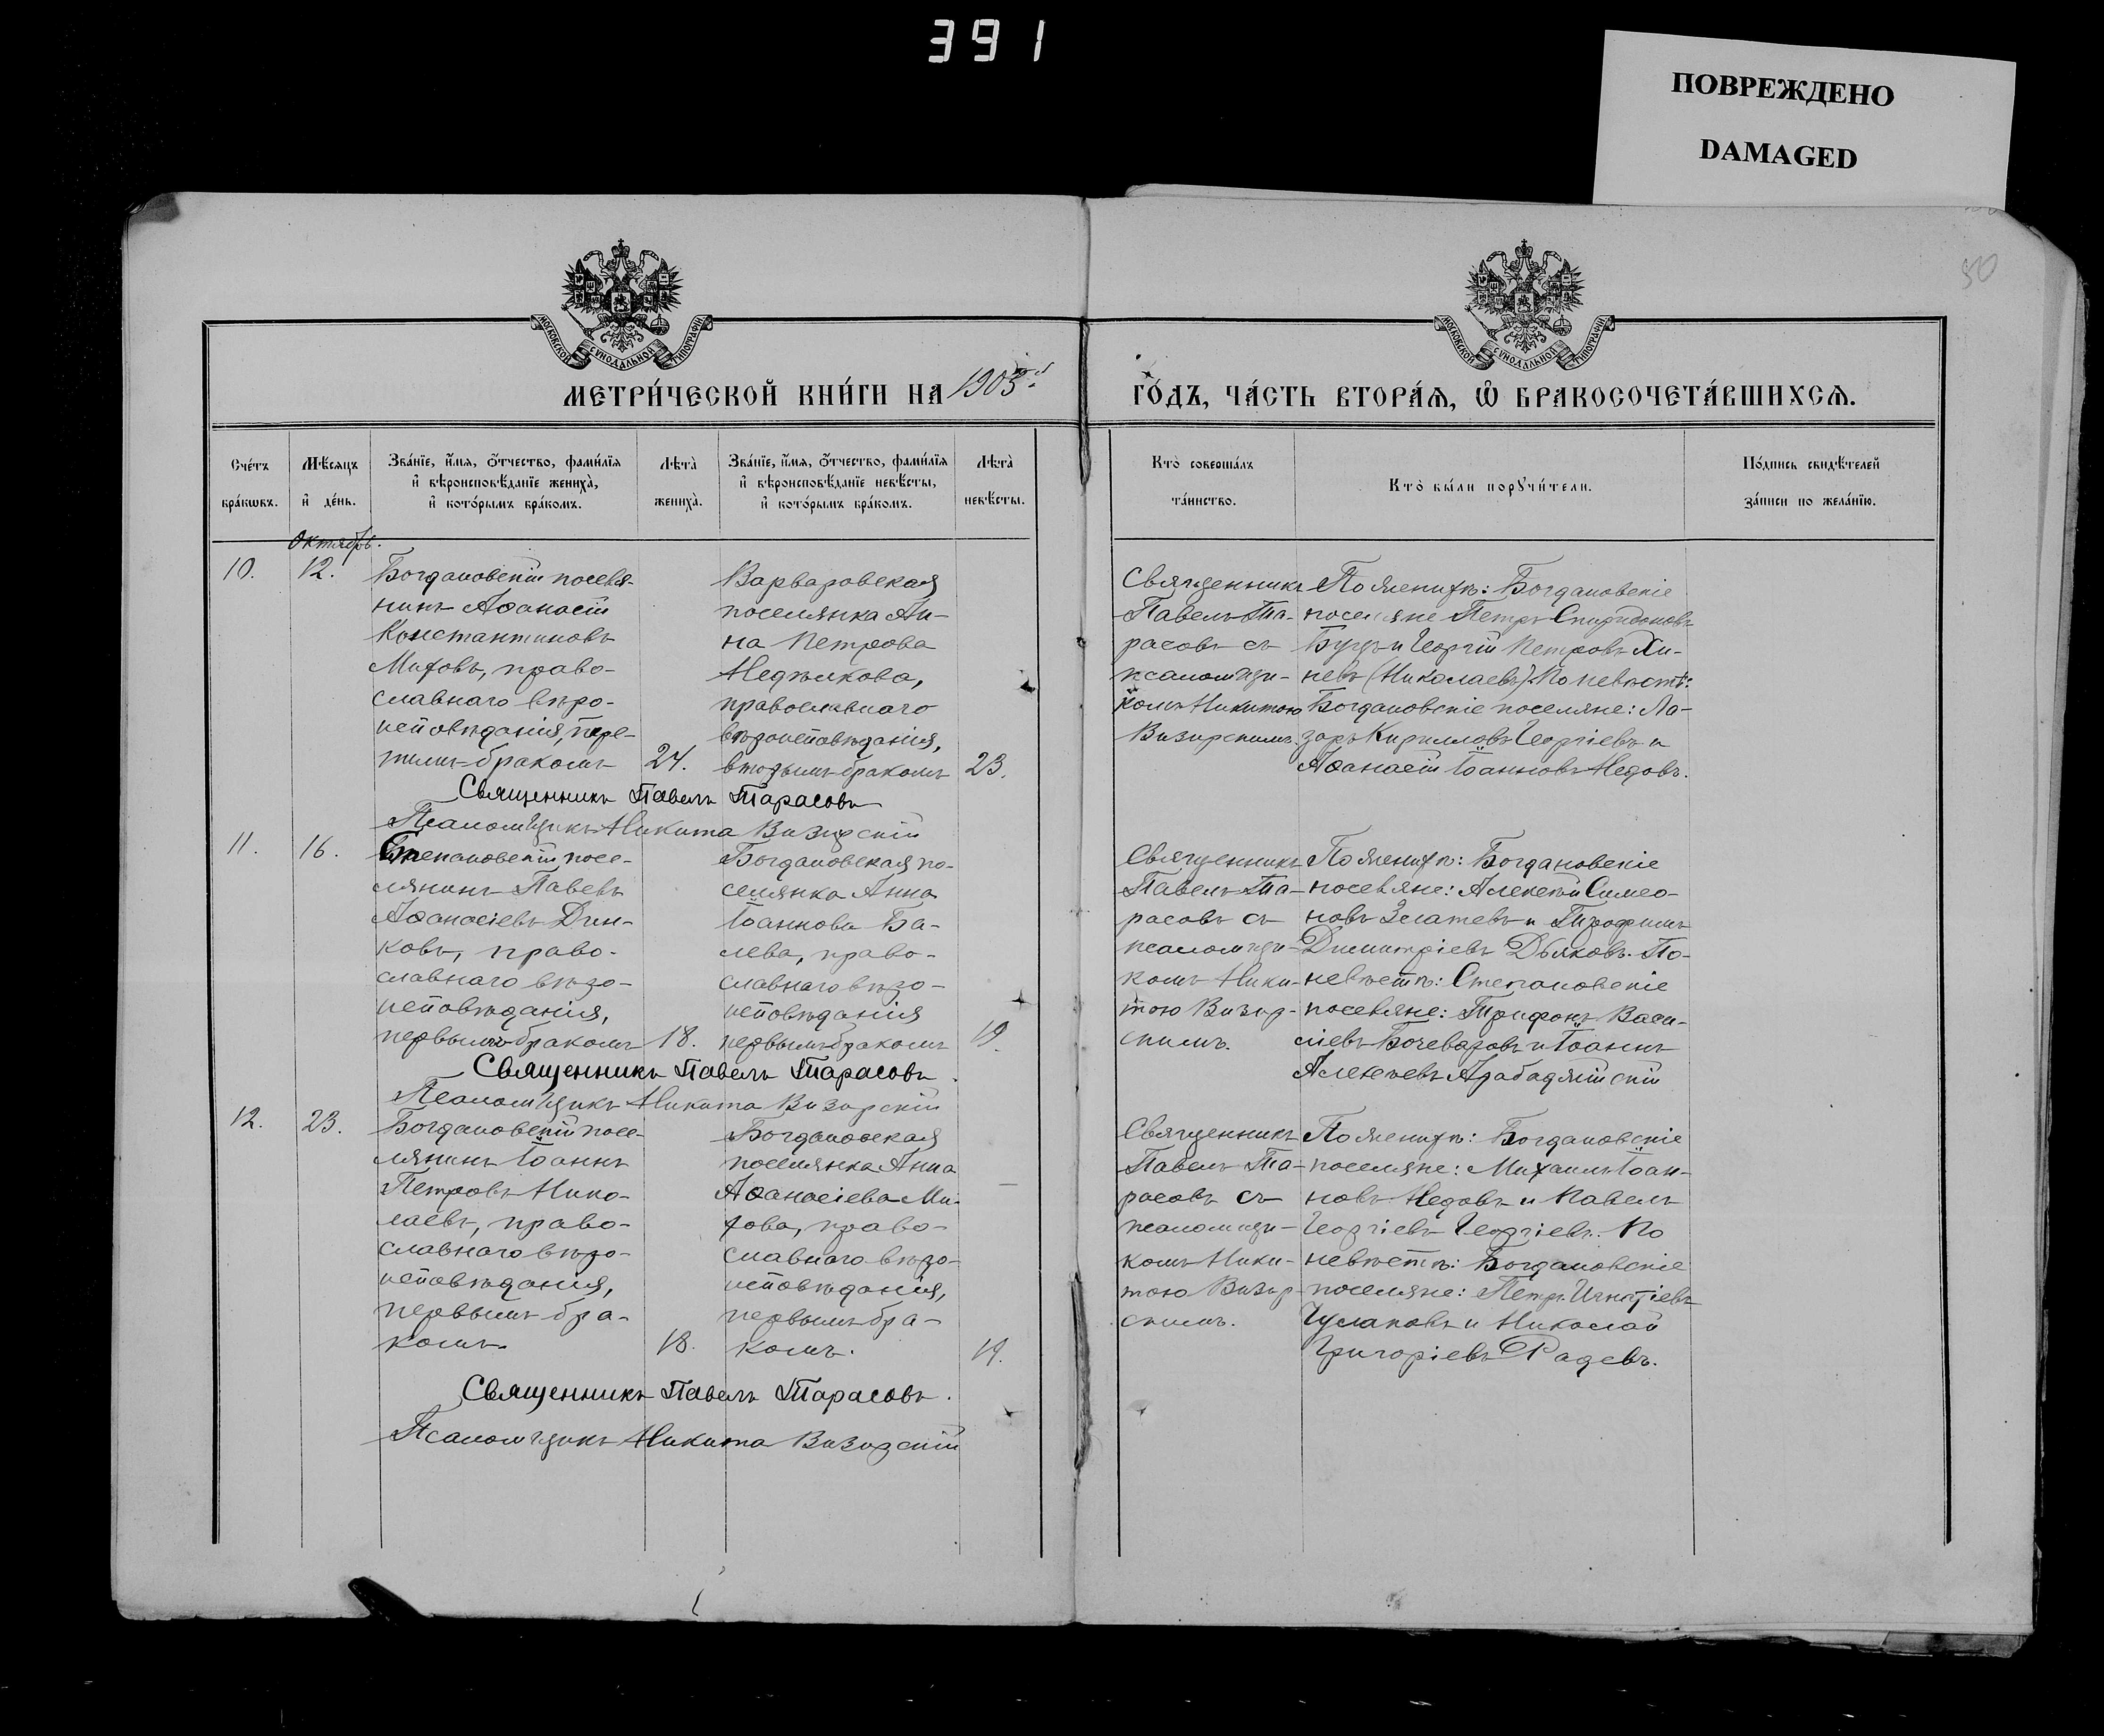 391
ПОВРЕЖДЕНО
DAMAGED
50
МОСКОВСКОЙ СѴНОДАЛЬНОЙ ТИПОГРАФІИ
МОСКОВСКОЙ СѴНОДАЛЬНОЙ ТИПОГРАФІИ
МЕТРИ́ЧЕСКОЙ КНИ́ГИ НА 1905й ГО́ДЪ, ЧА́СТЬ ВТОРА́Ѧ, Ѽ БРАКОСОЧЕТА́ВШИХСѦ.
Сче́тъ бра́кѡвъ.
Мѣ́сѧцъ и҆ де́нь.
Зва́нїе, и҆́мѧ, ѻ҆́тчество, фами́лїѧ
и҆ вѣроисповѣ́данїе жениха̀,
и҆ кото́рымъ бра́комъ.
Лѣ́та̀ жениха̀.
Зва́нїе, и҆́мѧ, ѻ҆́тчество, фами́лїѧ
и҆ вѣроисповѣ́данїе невѣ́сты,
и҆ кото́рымъ бра́комъ.
Лѣ́та̀ невѣ́сты.
Кто̀ соверша́лъ та́инство.
Кто̀ бы́ли порꙋчи́тели.
По́дпись свидѣ́телей за́писи по жела́нїю.
Октябрь.
10.
12.
Богдановскій поселя-
нинъ Аѳанасій
Константиновъ
Митовъ, право-
славнаго вѣро-
исповѣданія, тре-
тьимъ бракомъ
24.
Варваровская
поселянка Ан-
на Петрова
Недѣлкова,
православнаго
вѣроисповѣданія,
вторымъ бракомъ
23.
Священникъ
Павелъ Та-
расовъ съ
псаломщи-
комъ Никитою
Визирскимъ.
По женихѣ: Богдановскіе
поселяне Петръ Спиридоновъ
и Георгій Петровъ
(Николаевъ). По невѣстѣ:
Богдановскіе поселяне: Ла-
зарь Кирилловъ Георгіевъ и
Аѳанасій Іоанновъ Недовъ.
Священникъ Павелъ Тарасовъ
Псаломщикъ Никита Визирскій
11.
16.
Степановскій посе-
лянинъ Павелъ
Аѳанасіевъ Дин-
ковъ, право-
славнаго вѣро-
исповѣданія,
первымъ бракомъ
18.
Богдановская по-
селянка Анна
Іоаннова Ба-
лева, право-
славнаго вѣро-
исповѣданія
первымъ бракомъ
19.
Священникъ
Павелъ Та-
расовъ съ
псаломщи-
комъ Ники-
тою Визир-
скимъ.
По женихѣ: Богдановскіе
поселяне: Алексѣй Симео-
новъ Златевъ и Трофимъ
Димитріевъ Дьяковъ. По
невѣстѣ: Степановскіе
поселяне: Трифонъ Васи-
ліевъ Бочеваровъ и Іоаннъ
Алексѣевъ Арабаджійскій
Священникъ Павелъ Тарасовъ.
Псаломщикъ Никита Визирскій
12.
23.
Богдановскій посе-
лянинъ Іоаннъ
Петровъ Нико-
лаевъ, право-
славнаго вѣро-
исповѣданія,
первымъ бра-
комъ.
18.
Богдановская
поселянка Анна
Аѳанасіева Ми-
това, право-
славнаго вѣро-
исповѣданія,
первымъ бра-
комъ.
19.
Священникъ
Павелъ Та-
расовъ съ
псаломщи-
комъ Ники-
тою Визир-
скимъ.
По женихѣ: Богдановскіе
поселяне: Михаилъ Іоан-
новъ Недовъ и Павелъ
Георгіевъ Георгіевъ. По
невѣстѣ: Богдановскіе
поселяне: Петръ Игнатіевъ
Чулаковъ и Николай
Григоріевъ Радевъ.
Священникъ Павелъ Тарасовъ.
Псаломщикъ Никита Визирскій